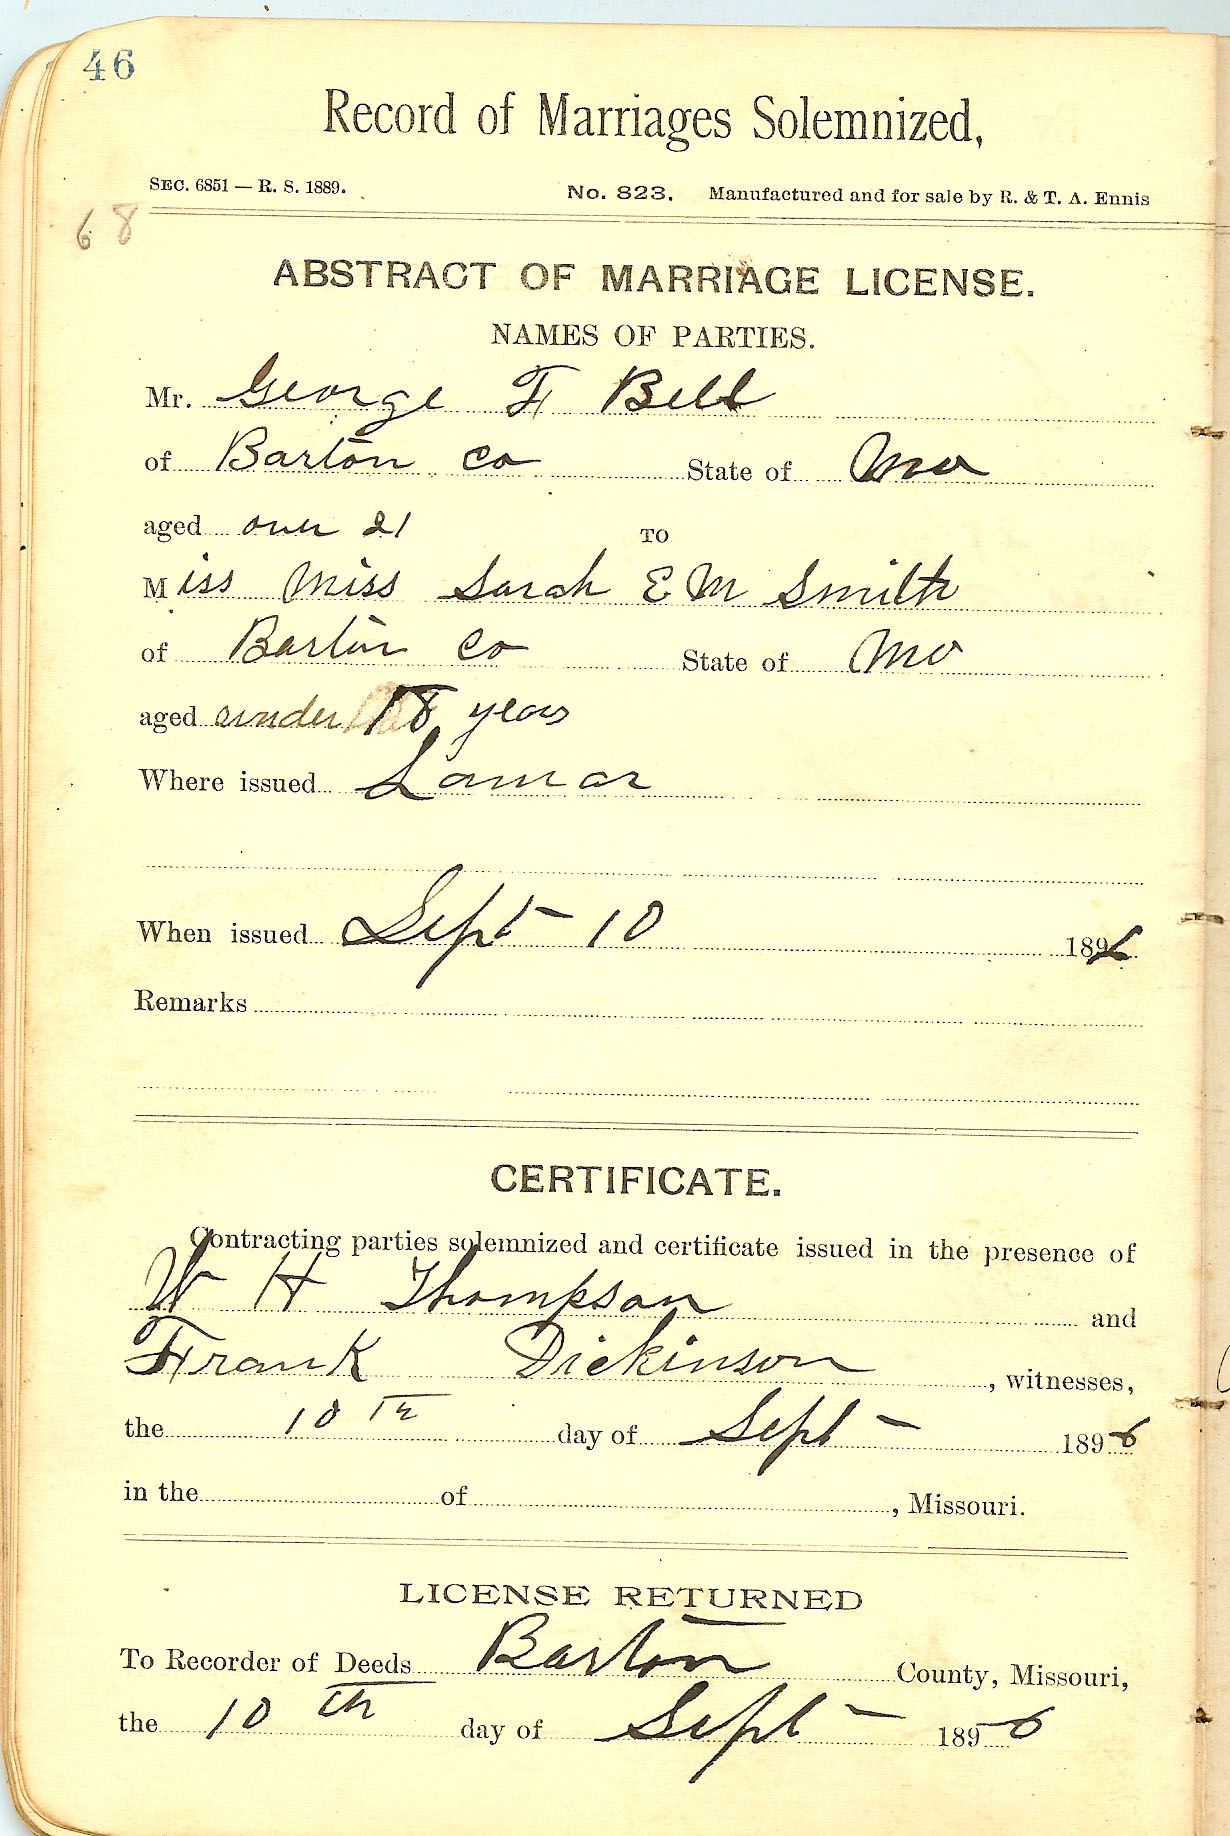 46
Record of Marriages Solemnized,
SEC. 6851 — R. S. 1889. No. 823. Manufactured and for sale by R. & T. A. Ennis
68
ABSTRACT OF MARRIAGE LICENSE.
NAMES OF PARTIES.
Mr. George F Bell
of Barton Co State of Mo
aged over 21 TO
Miss Miss Sarah E M Smith
of Barton Co State of Mo
aged under 18 years
Where issued Lamar
When issued Sept 10 1896
Remarks
CERTIFICATE.
Contracting parties solemnized and certificate issued in the presence of
W H Thompson and
Frank Dickinson, witnesses,
the 10th day of Sept 1896
in the of , Missouri.
LICENSE RETURNED
To Recorder of Deeds Barton County, Missouri,
the 10th day of Sept 1896